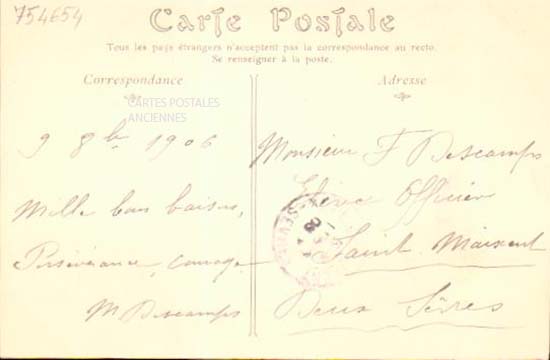 754654
Carte Postale
Tous les pays étrangers n'acceptent pas la correspondance au recto.
Se renseigner à la poste.
Correspondance
Adresse
CARTES POSTALES
ANCIENNES
9 8bre 1906
Mille bons baisers,
Persévérance, courage
M Descamps
Monsieur F Descamps
Elève Officier
Saint Maixent
Deux Sèvres